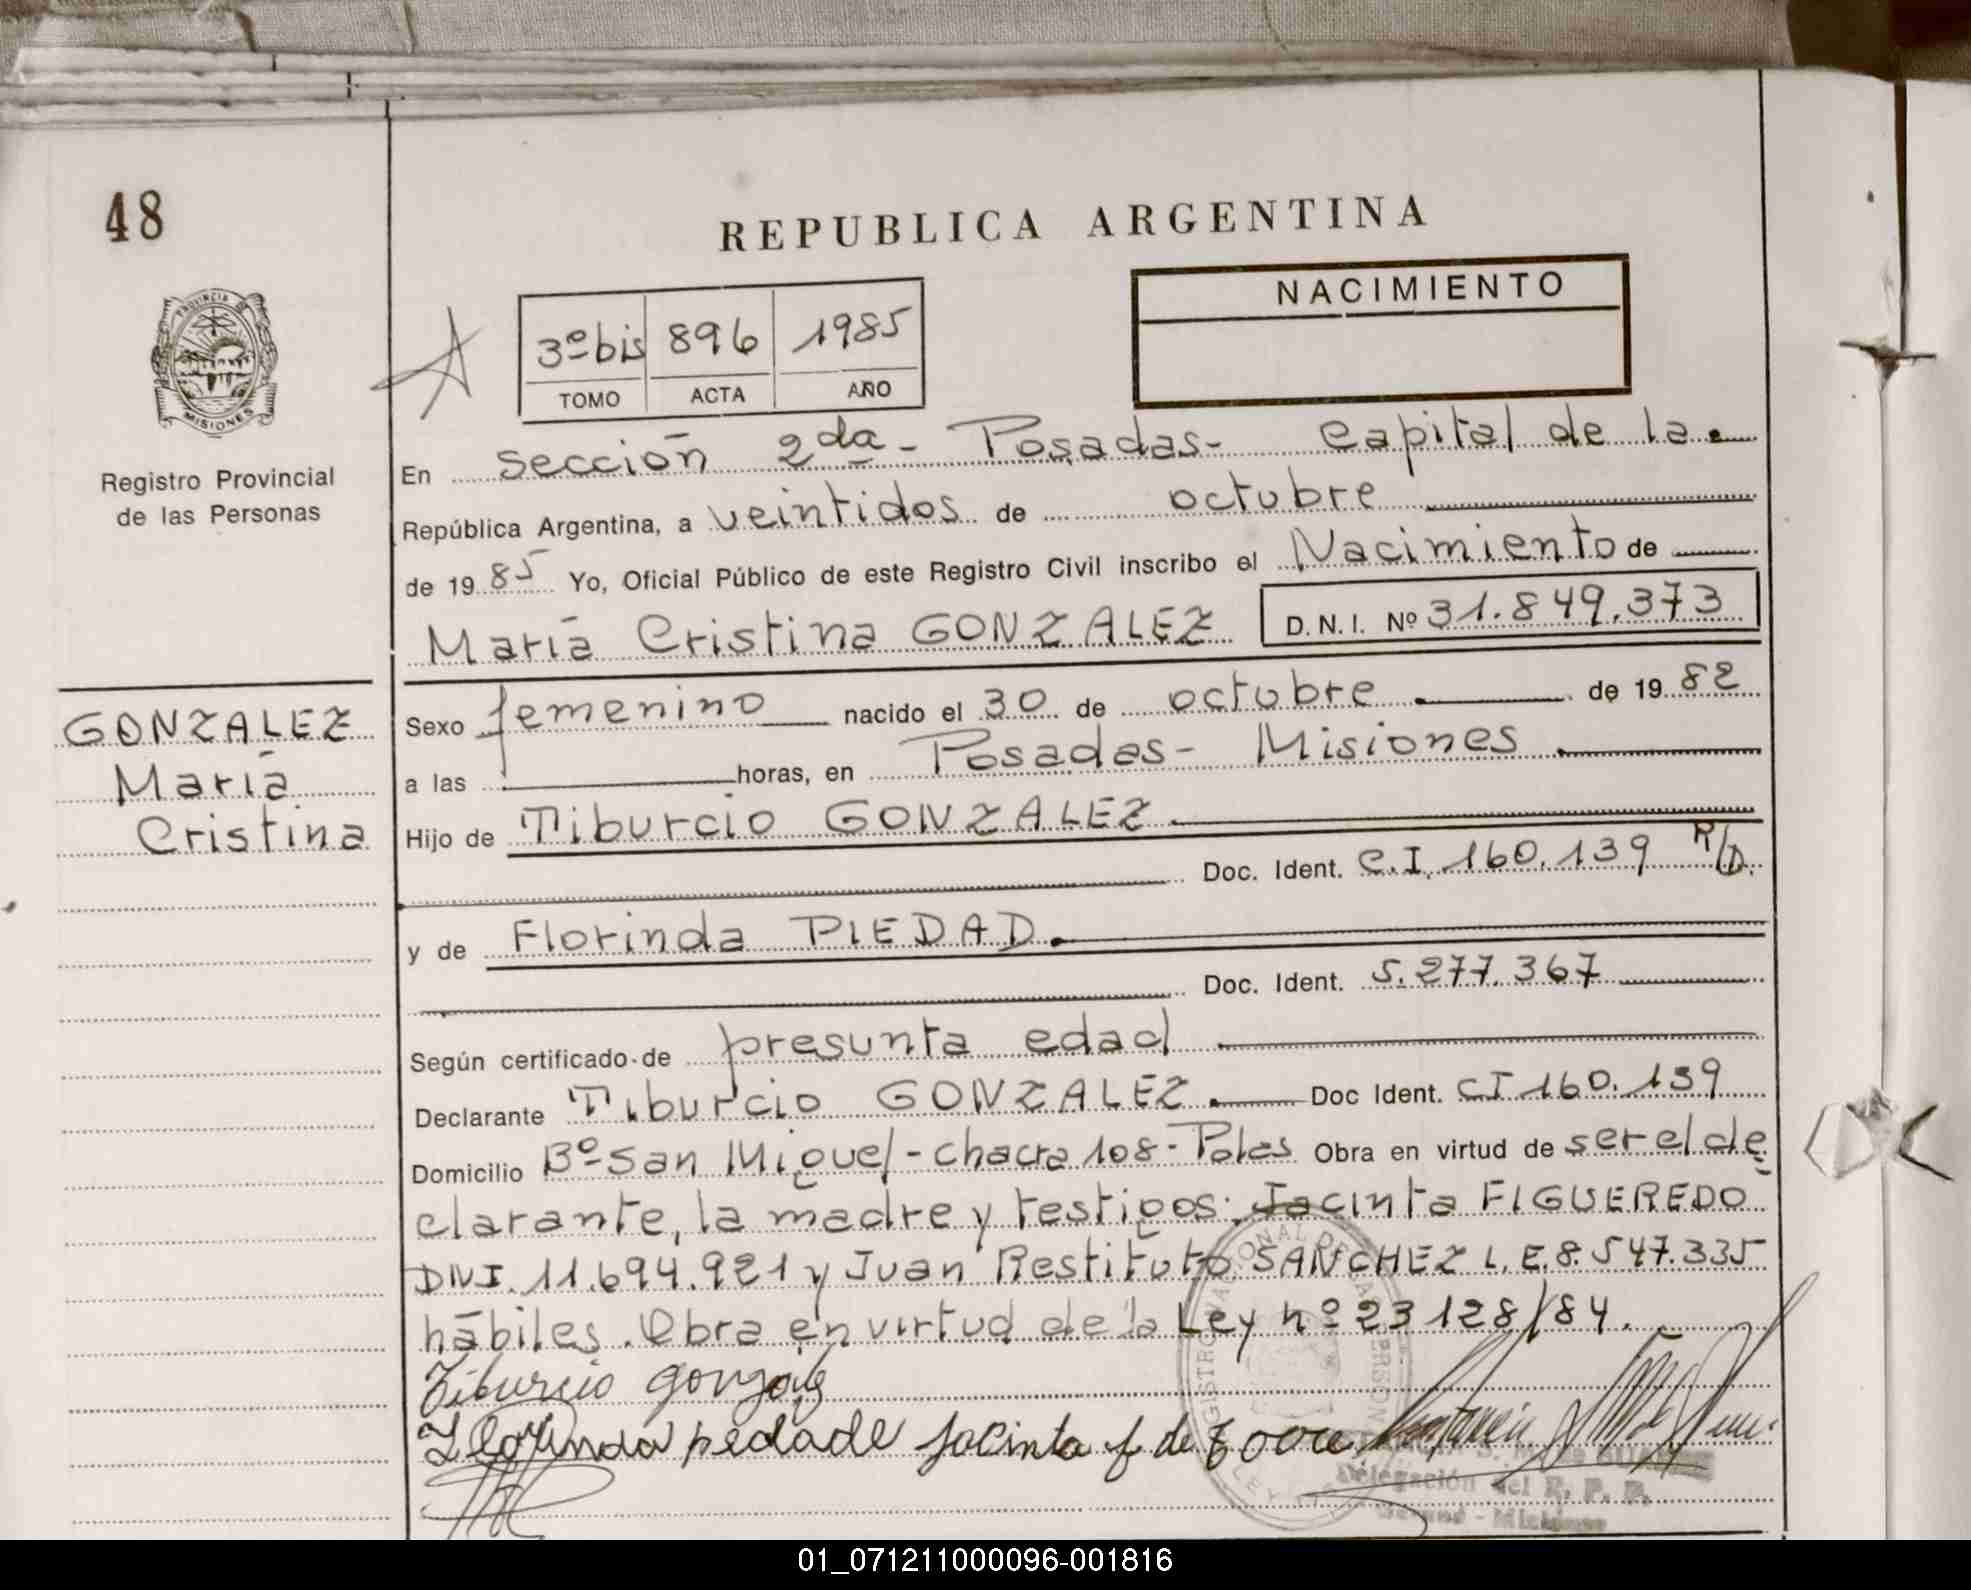 48
REPUBLICA ARGENTINA
PROVINCIA DE MISIONES
3º bis 896 1985
TOMO ACTA AÑO
NACIMIENTO
Registro Provincial
de las Personas
En sección 2da - Posadas - Capital de la
República Argentina, a veintidos de octubre
de 1985 Yo, Oficial Público de este Registro Civil inscribo el Nacimiento de
María Cristina GONZALEZ D.N.I. Nº 31.849.373
GONZALEZ
María
Cristina
Sexo femenino nacido el 30 de octubre de 1982
a las horas, en Posadas - Misiones
Hijo de Tiburcio GONZALEZ
Doc. Ident. C.I. 160.139 R/D.
y de Florinda PIEDAD
Doc. Ident. 5.277.367
Según certificado de presunta edad
Declarante Tiburcio GONZALEZ Doc Ident. CI 160.139
Domicilio Bº San Miguel - chacra 108 - Obra en virtud de ser el de
clarante, la madre y testigos: Jacinta FIGUEREDO
DNI. 11.694.921 y Juan Restituto SANCHEZ L.E. 8.547.335
hábiles. Obra en virtud de la Ley nº 23128/84.
Tiburcio gonzalez
pedade Jacinta f de
Delegación del R. P. P.
Misiones
01_071211000096-001816